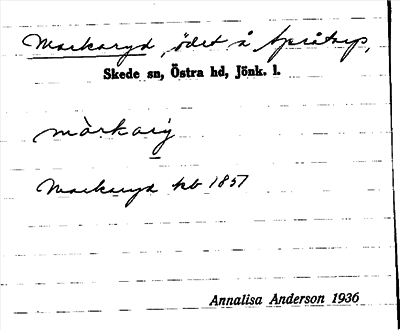 Markaryd, ödet å Språtorp,
Skede sn, Östra hd, Jönk. l.
màrkary
Markaryd kb 1857
Annalisa Anderson 1936